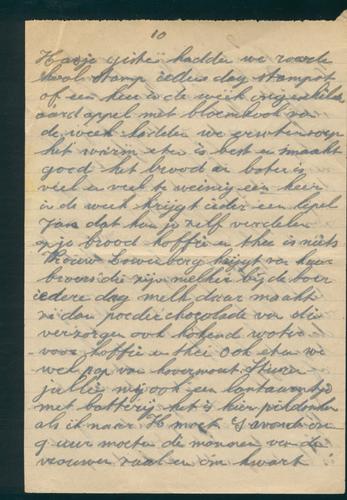 10
Hansje gister hadden we roode
kool stamp iedere dag stamppot
of een keer in de week ongeschilde
aardappel met bloemkool van
de week hadden we erwtensoep
het warm eten is best en smaakt
goed het brood en boter is
veel en veel te weinig een keer
in de week krijgt ieder een lepel
Jam dat kan je zelf verdelen
op je brood koffie en thee is niets
Vrouw Lowenberg krijgt van haar
broers die zijn melker bij de boer
iedere dag melk daar maakt
ze dan poedichocolade van die
verzorgen ook kokend water
voor koffie en thee Ook eten we
wel pap van havermout. Sturen
jullie mij ook een lantaarntje
met batterij het is hier pikdonker
als ik naar H moet. S avonds om
9 uur moeten de mannen van de
vrouwen zaal en om kwart